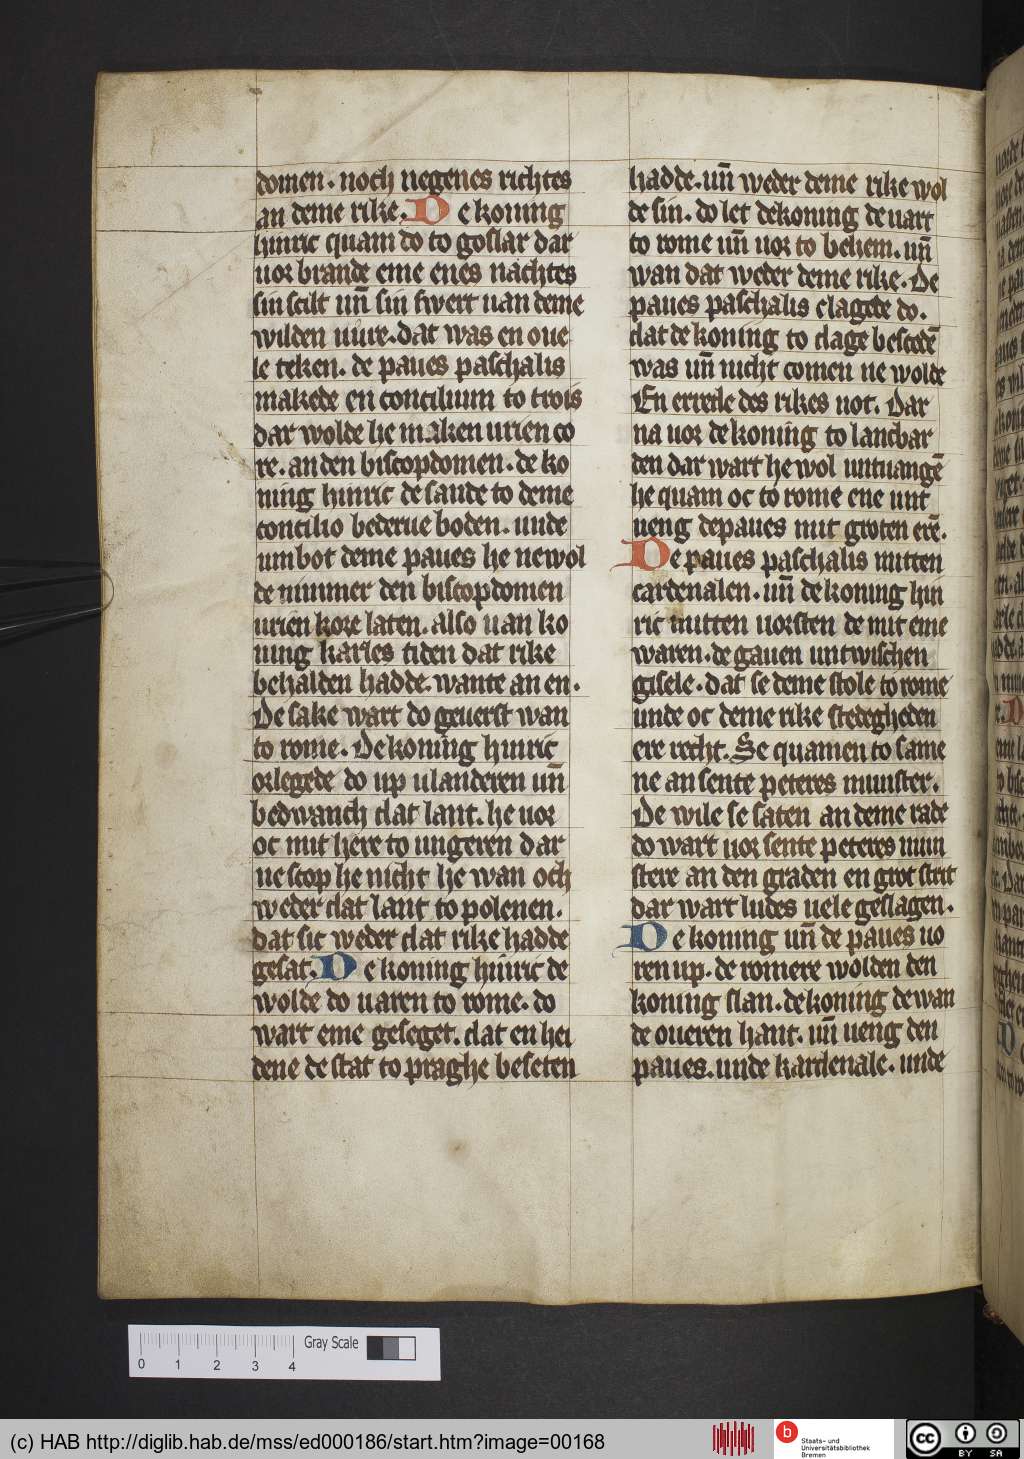 domen. noch negenes richtes
an deme rike. De koning
hinric quam do to goslar dar
uor brande eme enes nachtes
sin scilt un̄ sin swert uan deme
wilden uiure. dat was en oue
le teken. de paues paschalis
makede en concilium to trois
dar wolde he maken urien co
re. an den biscopdomen. de ko
ning hinric de sande to deme
concilio bederue boden. unde
umbot deme paues he ne wol
de nimmer den biscopdomen
urien kore laten. also uan ko
ning karles tiden dat rike
behalden hadde. wante an en.
De sake wart do geuerst wan
to rome. De koning hinric
orlegede do up ulanderen un̄
bedwanch dat lant. he uor
oc mit here to ungeren dar
ne scop he nicht he wan och
weder dat lant to polenen.
dat sic weder dat rike hadde
gesat. De koning hinric de
wolde do uaren to rome. do
wart eme geseget. dat en hei
dene de stat to praghe beseten
hadde. un̄ weder deme rike wol
de sin. do let de koning de uart
to rome un̄ uor to behem. un̄
wan dat weder deme rike. De
paues paschalis clagede do.
dat de koning to dage bescedē
was un̄ nicht comen ne wolde
En errede des rikes not. Dar
na uor de koning to lancbar
den dar wart he wol untuangē
he quam oc to rome ene unt
ueng de paues mit groten erē.
De paues paschalis mitten
cardenalen. un̄ de koning hin
ric mitten uorsten de mit eme
waren. de gauen untwischen
gisele. dat se deme stole to rome
unde oc deme rike stedegheden
ere recht. Se quamen to same
ne an sente peteres munster.
De wile se saten an deme rade
do wart uor sente peteres mun
stere an den graden en grot strit
dar wart ludes uele geslagen.
De koning un̄ de paues uo
ren up. de romere wolden den
koning slan. de koning de wan
de oueren hant. un̄ ueng den
paues. unde kardenale. unde
0 1 2 3 4 Gray Scale
(c) HAB http://diglib.hab.de/mss/ed000186/start.htm?image=00168
b Staats- und
Universitätsbibliothek
Bremen
cc BY SA